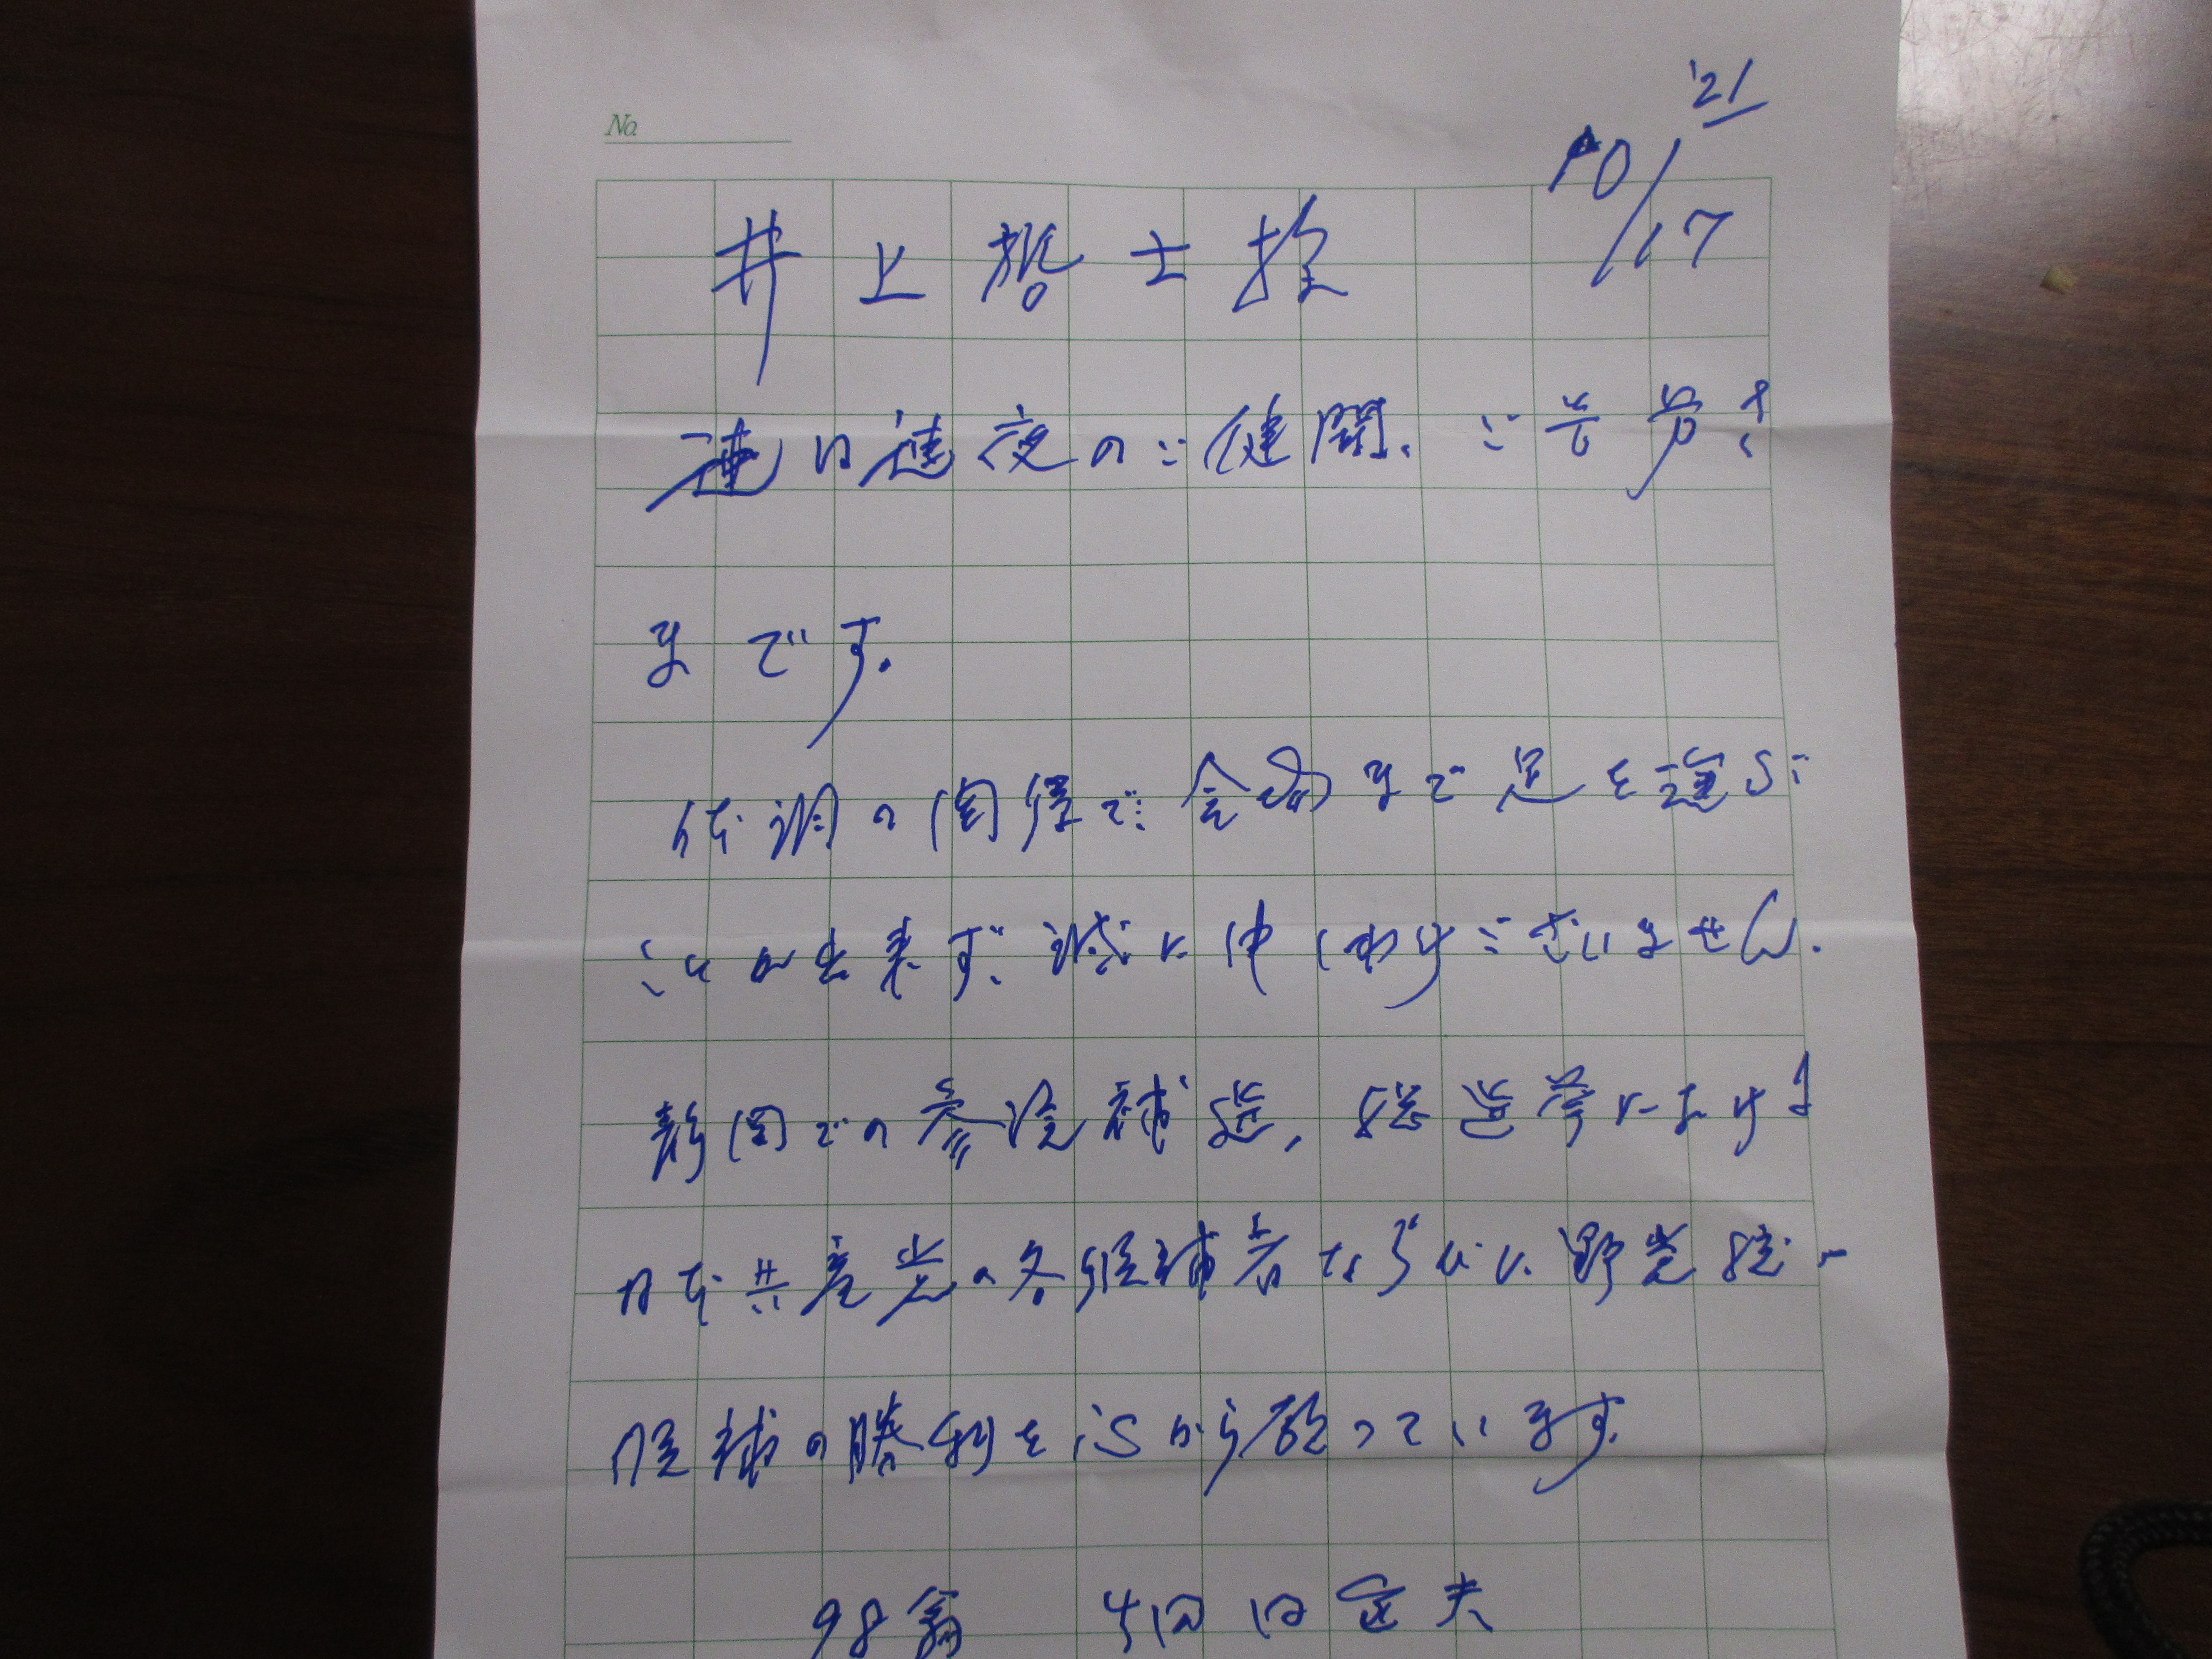 No
'21
10/17
井上哲士様
連日連夜のご健闘、ご苦労さ
まです。
体調の関係で会場まで足を運ぶ
ことが出来ず、誠に申しわけございません。
静岡での参院補選、総選挙における
日本共産党の各候補者ならびに野党統一
候補の勝利を心から願っています。
98翁 田定夫